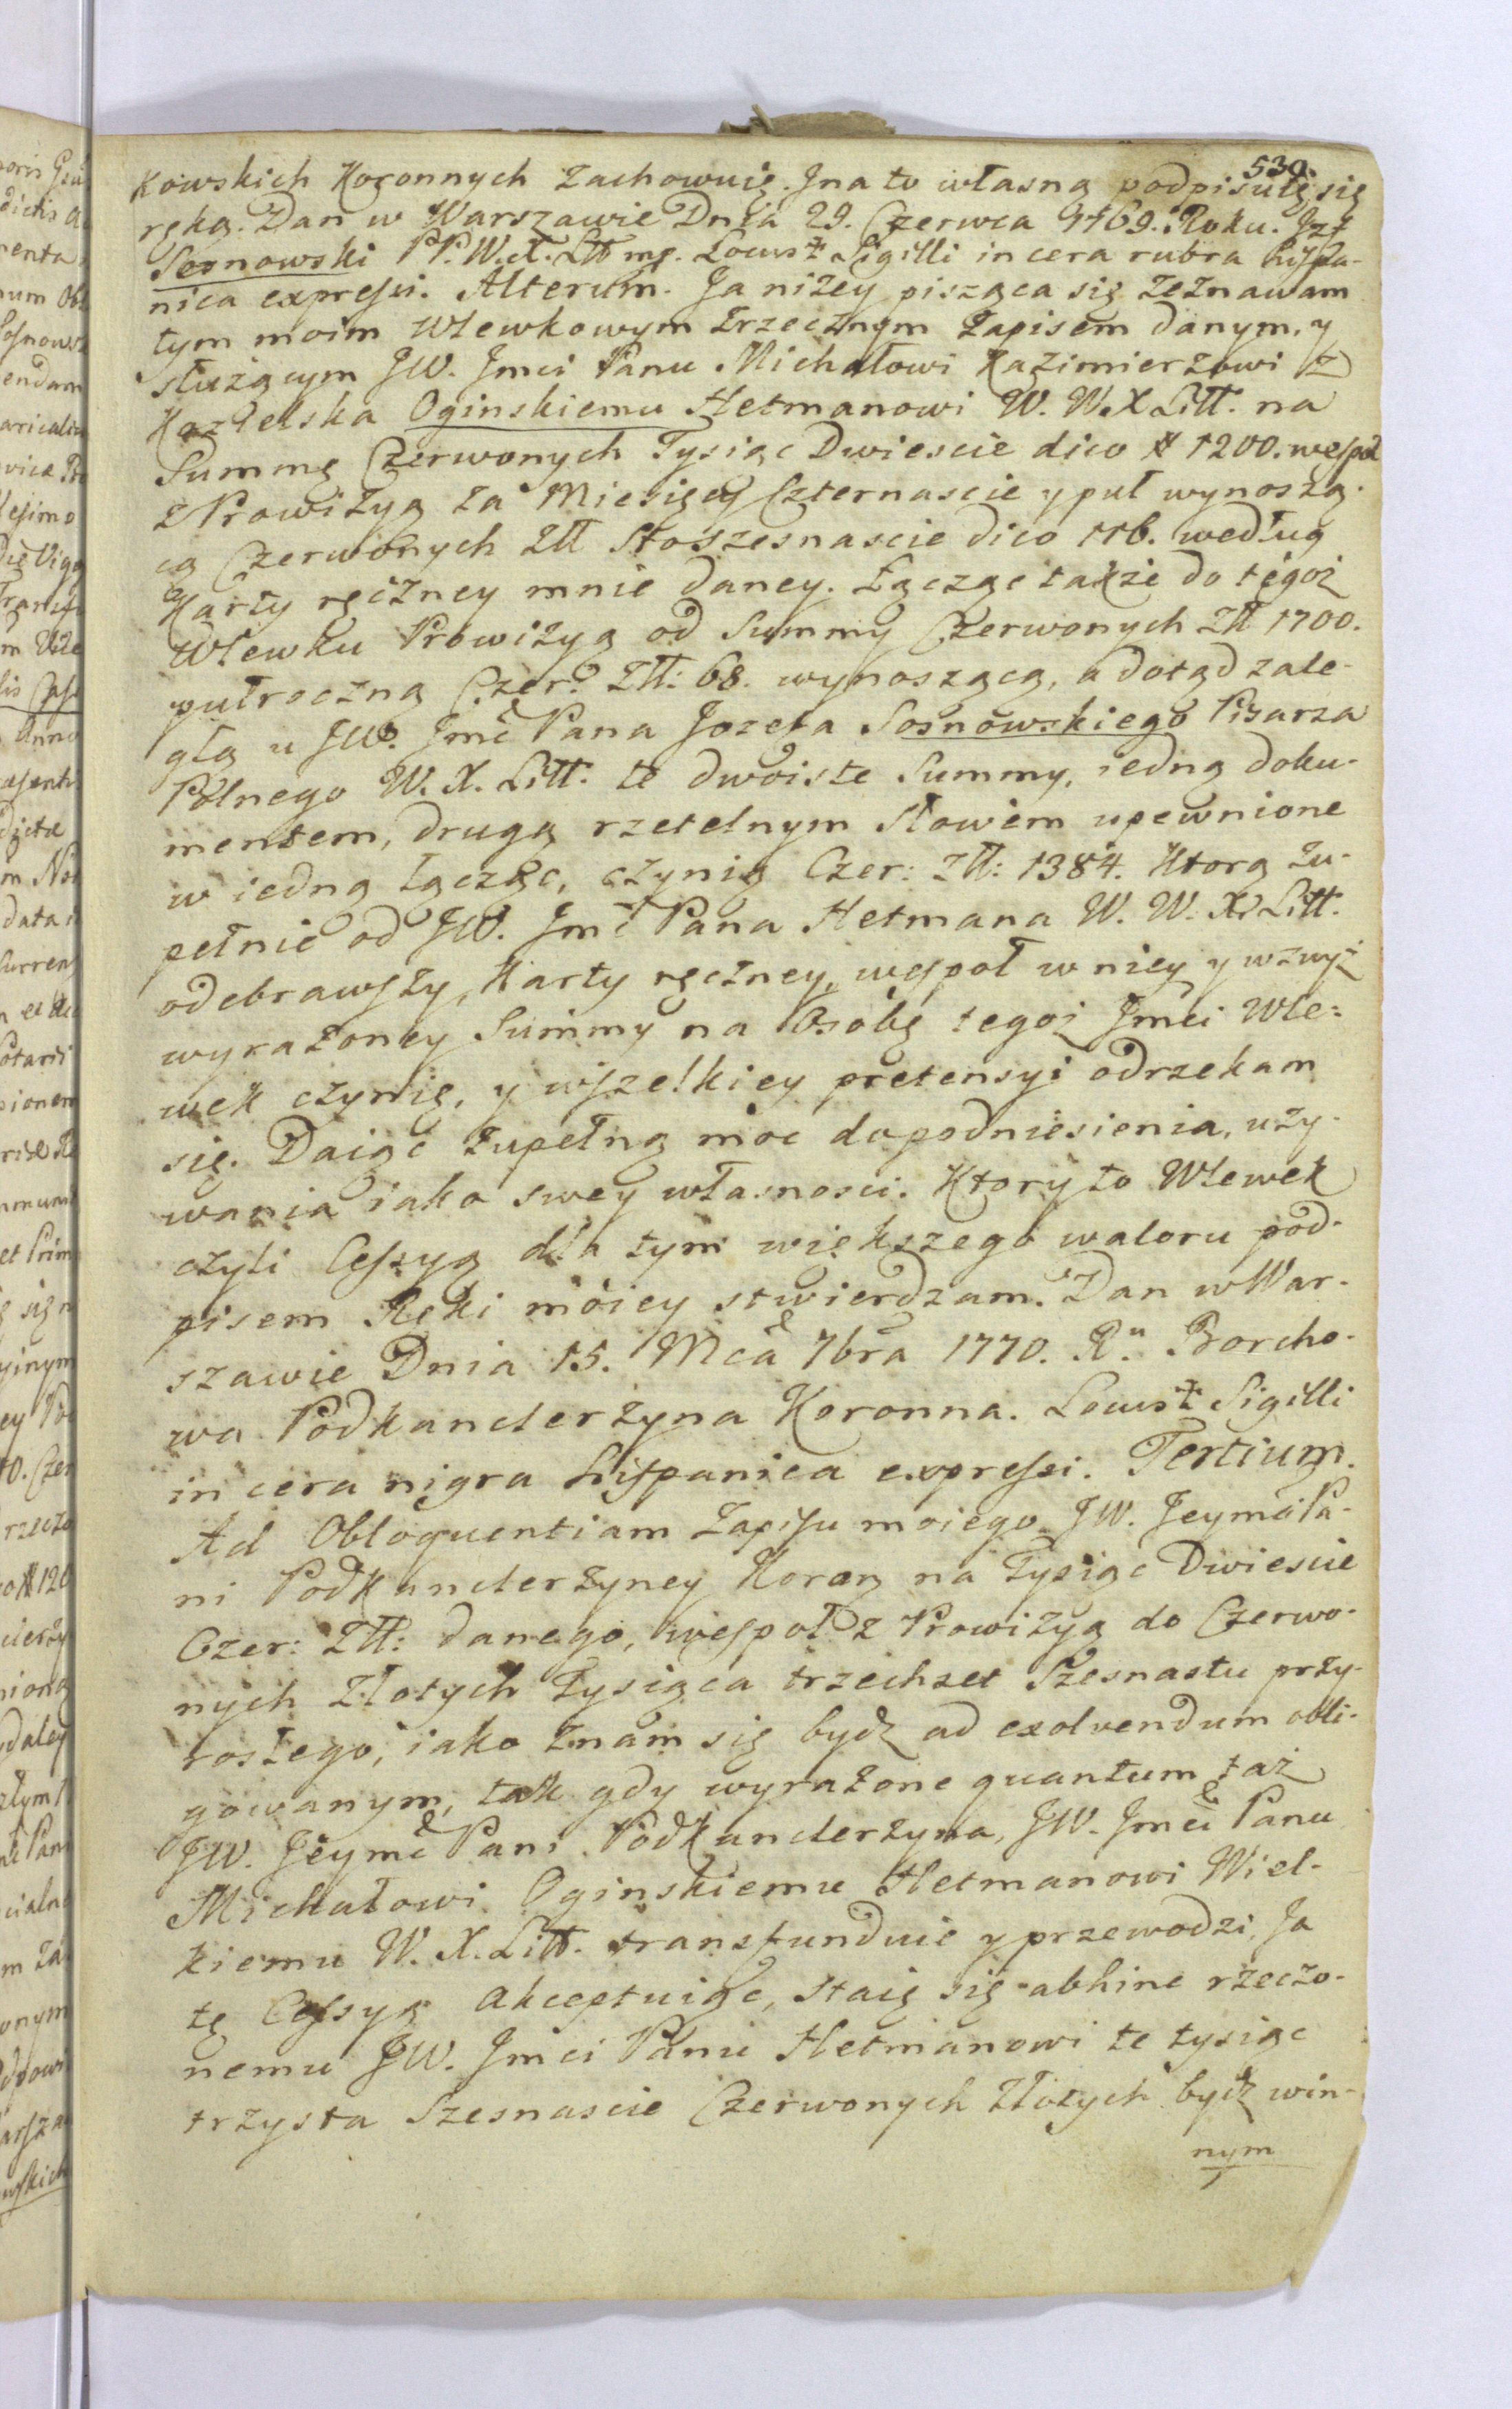 539.
kowskich Koronnych zachowuię. Ina to własną podpisuię się
ręką. Dan w Warszawie Dnia 29. Czerwca 1769. Roku. Jzf
Sosnowski PP. W.X. Litt mp. Locus Sigilli in cera rubra hispa-
nica expressi. Alterum. Ja niżey pisząca się zeznawam
tym moim Wlewkowym Wrzecznym Zapisem danym, y
służącym JW. Jmci Panu Michałowi Kazimierzowi z
Kozielska Oginskiemu Hetmanowi W. W.X Litt. na
Summę Czerwonych Tysiąc Dwiescie dico # 1200. wespoł
z Prowizyą za Miesięcy Czternascie y puł wynoszą-
cą Czerwonych Złł Stoszesnascie dico 116. według
Karty ręczney mnie daney. Łącząc także do tegoż
Wlewku Prowizyą od Summy Czerwonych Złł 1700.
pułroczną Czer. Złł: 68. wynoszącą, a dotąd zale-
głą u JW. Jmć Pana Jozefa Sosnowskiego Pisarza
Polnego W. X. Litt. te dwoiste Summy, iedną doku-
mentem, drugą rzetelnym słowem upewnione
w iedną łącząc, czynią Czer: Złł: 1384. Ktorą zu-
pełnie od JW. Jmć Pana Hetmana W. W. X. Litt.
odebrawszy, Karty ręczney, wespoł w niey y wzwyż
wyrażoney Summy na Osobę tegoż Jmci Wle-
wek czynię, y wszelkiey pretensyi odrzekam
się. Daiąc zupełną moc do podniesienia, uży-
wania iako swey własnosci. Ktory to Wlewek
czyli Cessyą dla tym większego waloru pod-
pisem Ręki moiey stwierdzam. Dan w War-
szawie Dnia 15. Mca 7bra 1770. Ru. Borcho-
wa Podkanclerzyna Koronna. Locus Sigilli
in cera nigra hispanica expressi. Tertium.
Ad Obloquentiam Zapisu moiego JW. Jeymci Pa-
ni Podkanclerzyney Koron na Tysiąc Dwiescie
Czer: Złł: danego, wespoł z Prowizyą do Czerwo-
nych Złotych Tysiąca trzechset Szesnastu przy-
rosłego, iako znam się bydź ad exolvendum obli-
gowanym, tak gdy wyrażone quantum taż
JW. Jeymć Pani Podkanclerzyna, JW. Jmci Panu
Michałowi Oginskiemu Hetmanowi Wiel-
kiemu W. X. Litt. transfunduie y przewodzi, Ja
tę Cessyą Akceptuiąc, staię się abhinc rzeczo-
nemu JW. Jmci Panu Hetmanowi te tysiąc
trzysta Szesnascie Czerwonych Złotych bydź win-
nym